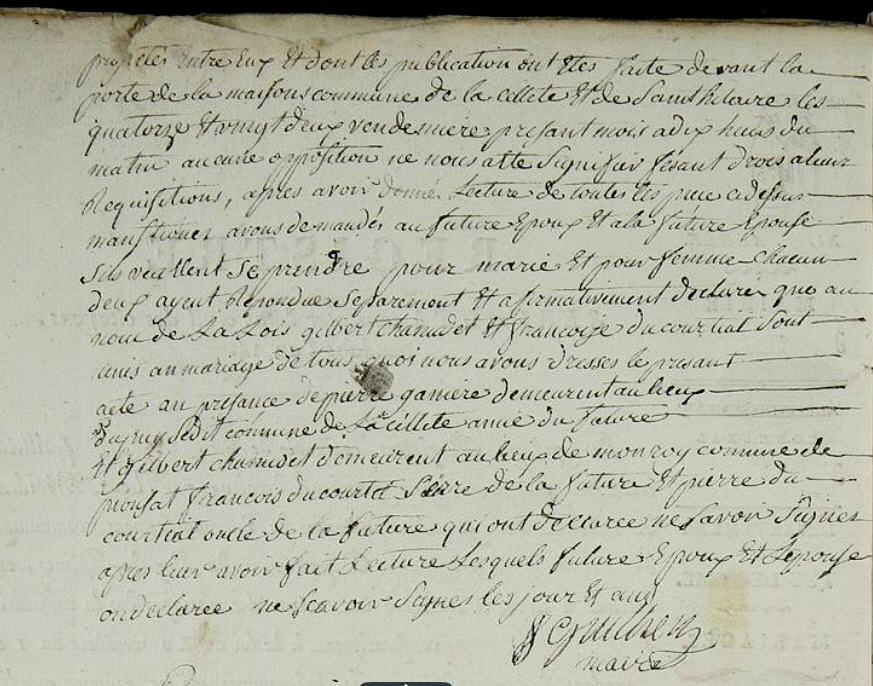 projetés entre Eux Et dont les publication ont Etes faite devant la
porte de la maisons commune de la cellete Et de Sainthilaire les
quatorze Et vingt deux vendemiere presant mois a dix huis du
matin aucune opposition ne nous atte Signifier fisant drois a leur
Requisitions, apres avoir donné Lecture de toutes les piece cidessus
mansttionez avons demandés au future Epoux Et a la future Epouse
Sils veullent Se prendre pour marie Et pour femme chacun
deux ayent Repondue Separement Et afirmativement declaré que au
nom de La Lois gilbert chamidet Et francoize du courtiat Sont
unis an mariage de tous quoi nous avons dresses le presant
acte an presance de pierre ganiere demeurent au lieux
Sedit commune de La cellete amie du future
Et gilbert chamidet demeurent au lieux de monroy commune de
pionsat francois ducourtiat frere de la future Et pierre du
courtiat oncle de la future qui ont declaree ne Savoir Signer
apres leur avoir fait Lecture Lesquels future Epoux Et Lepouse
on declaree ne Scavoir Signes les jour Et an
maire